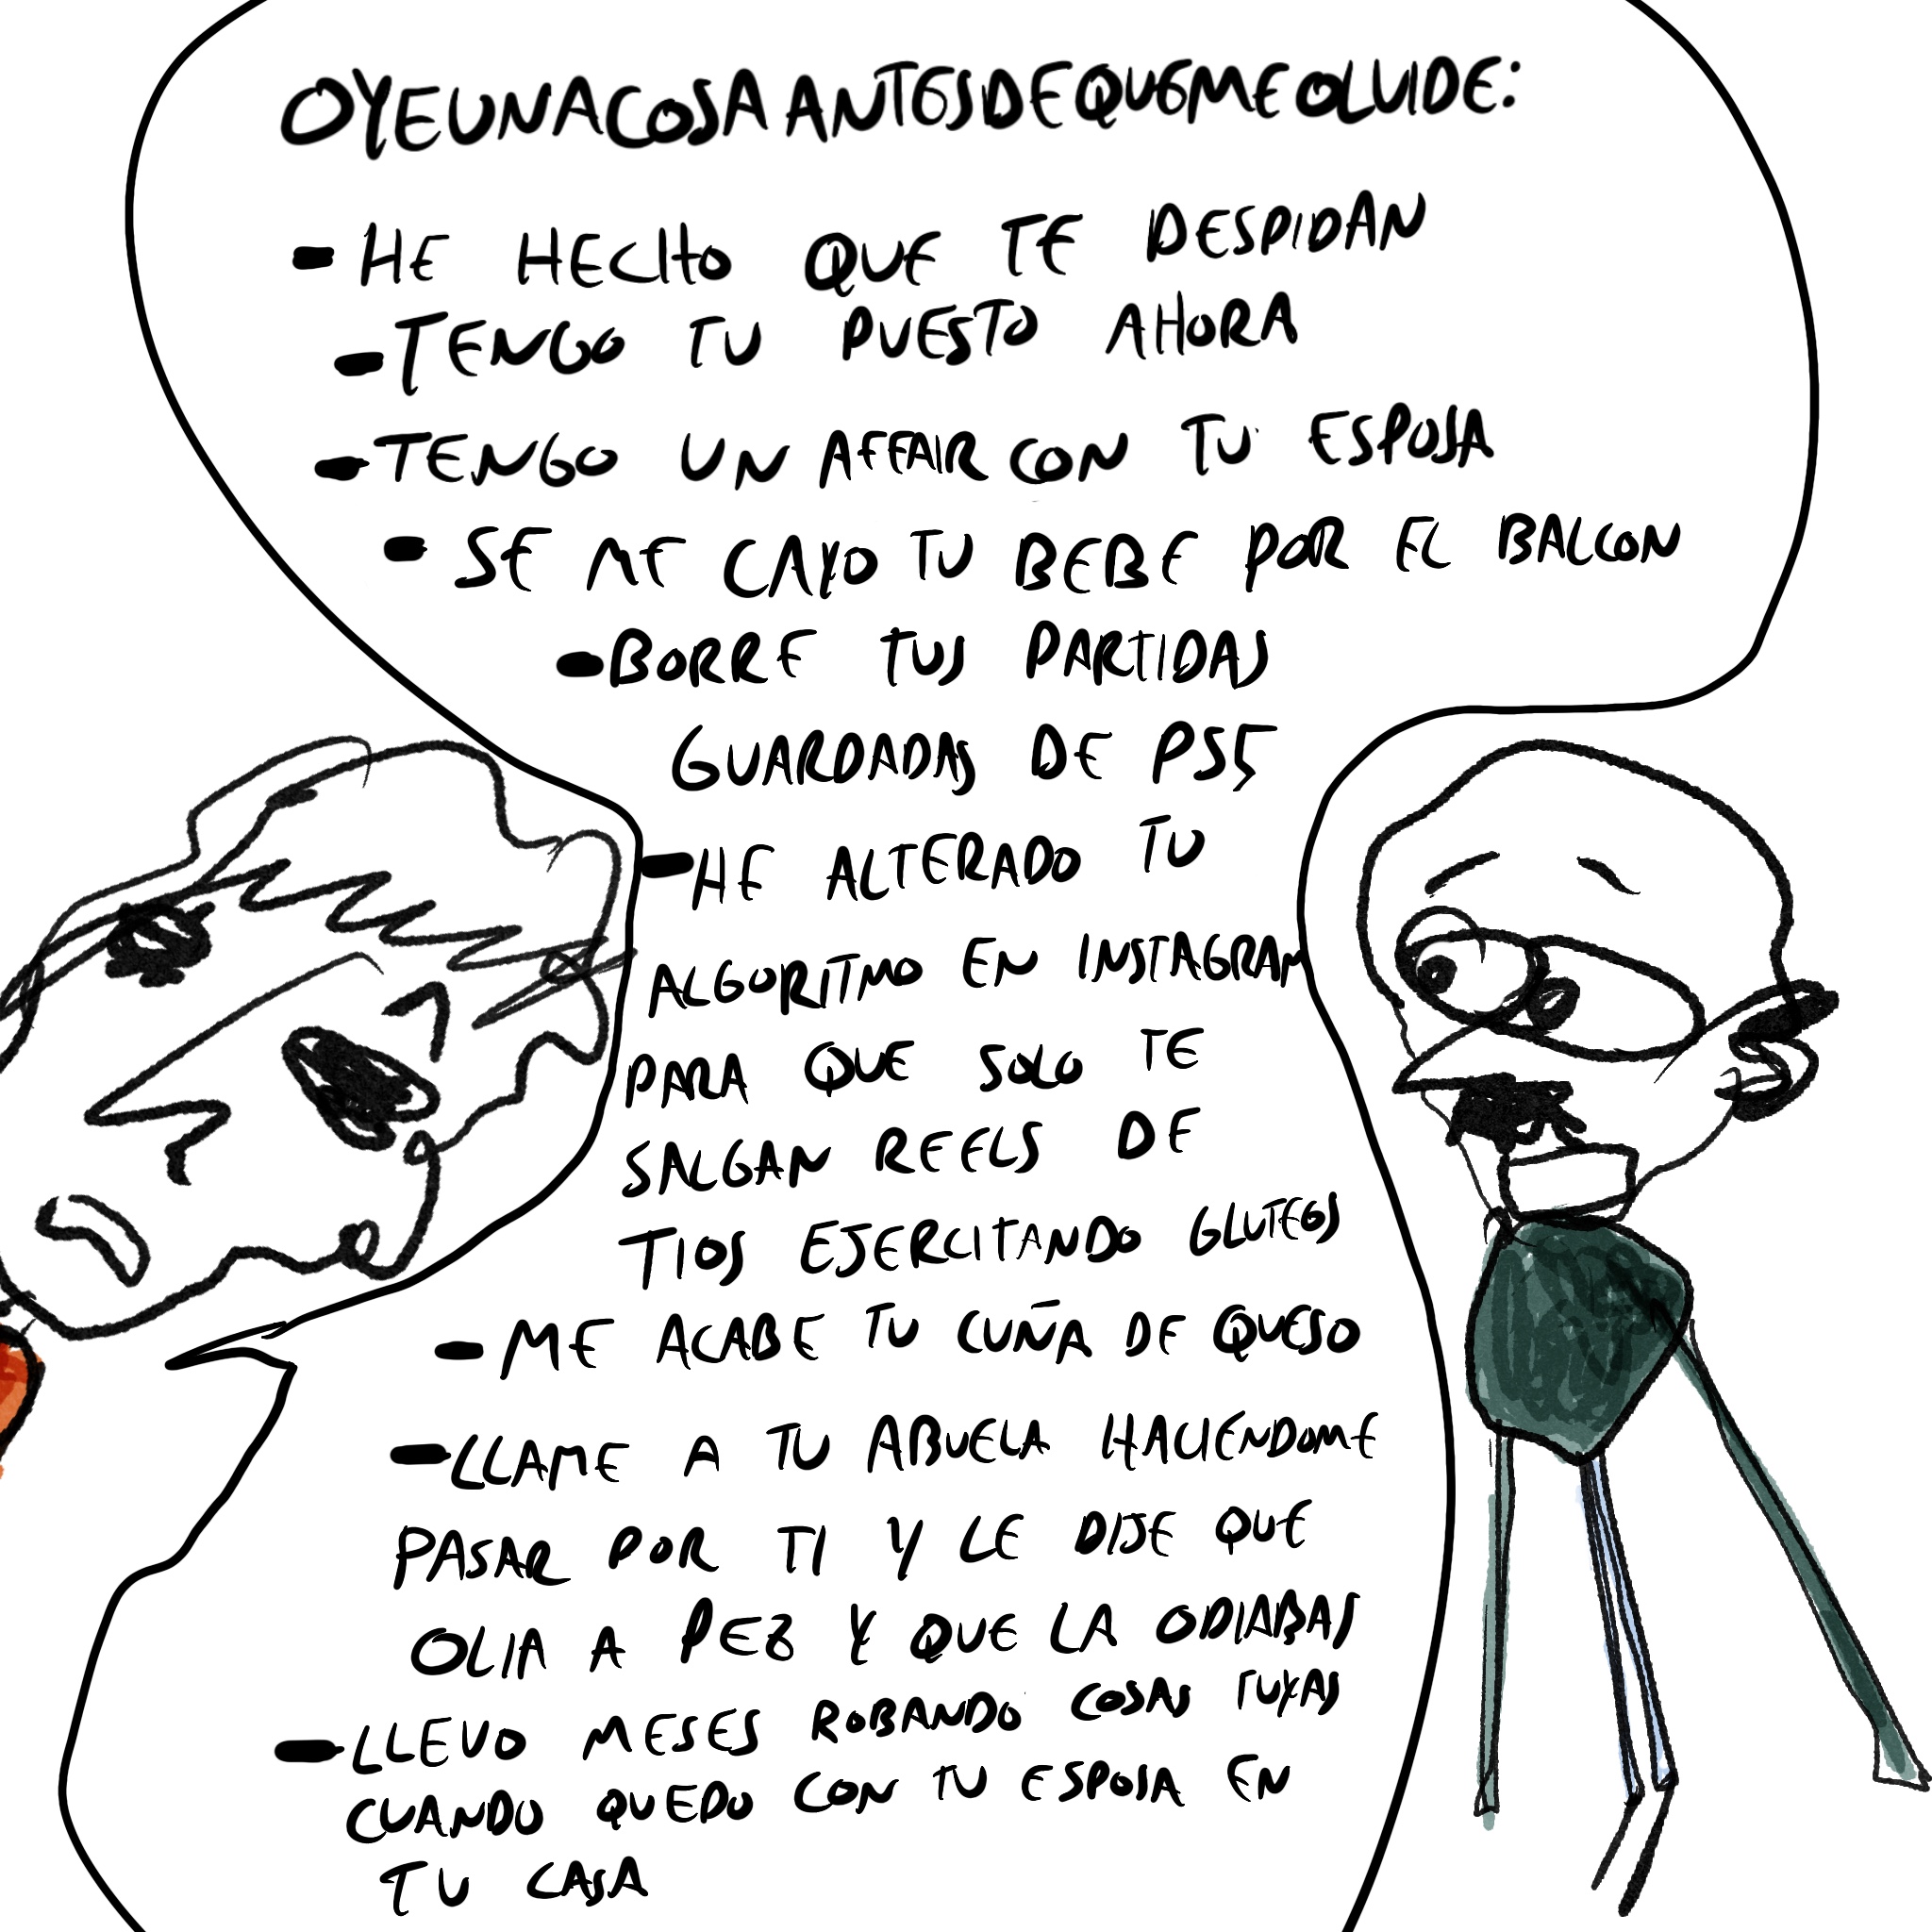 OYE UNA COSA ANTES DE QUE ME OLVIDE:
- HE HECHO QUE TE DESPIDAN
- TENGO TU PUESTO AHORA
- TENGO UN AFFAIR CON TU ESPOSA
- SE ME CAYO TU BEBE POR EL BALCON
- BORRE TUS PARTIDAS
GUARDADAS DE PS5
- HE ALTERADO TU
ALGORITMO EN INSTAGRAM
PARA QUE SOLO TE
SALGAN REELS DE
TIOS EJERCITANDO GLUTEOS
- ME ACABE TU CUÑA DE QUESO
- LLAME A TU ABUELA HACIENDOME
PASAR POR TI Y LE DIJE QUE
OLIA A PEZ Y QUE LA ODIABAS
- LLEVO MESES ROBANDO COSAS TUYAS
CUANDO QUEDO CON TU ESPOSA EN
TU CASA